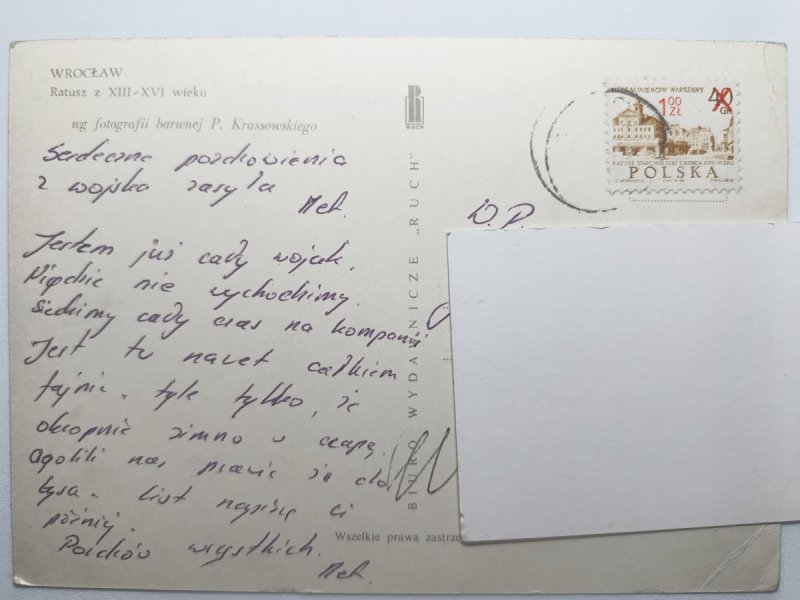 WROCŁAW
Ratusz z XIII-XVI wieku
wg fotografii barwnej P. Krassowskiego
RUCH
BIURO WYDAWNICZE „RUCH”
Serdeczne pozdrowienia
z wojska zasyła
Met.
Jestem już cały wojak.
Nigdzie nie wychodzimy.
Siedzimy cały czas na kompanii
Jest tu nawet całkiem
fajnie. tyle tylko, że
okropnie zimno w czapę.
Ogolili nas prawie że do
łysa. List napiszę ci
później.
Pozdrów wszystkich.
Met.
W.P.
WIEKÓW WARSZAWY
1,00 ZŁ
40 GR
RATUSZ STAROMIEJSKI Z KOŃCA XVIII WIEKU
POLSKA
Wszelkie prawa zastrze